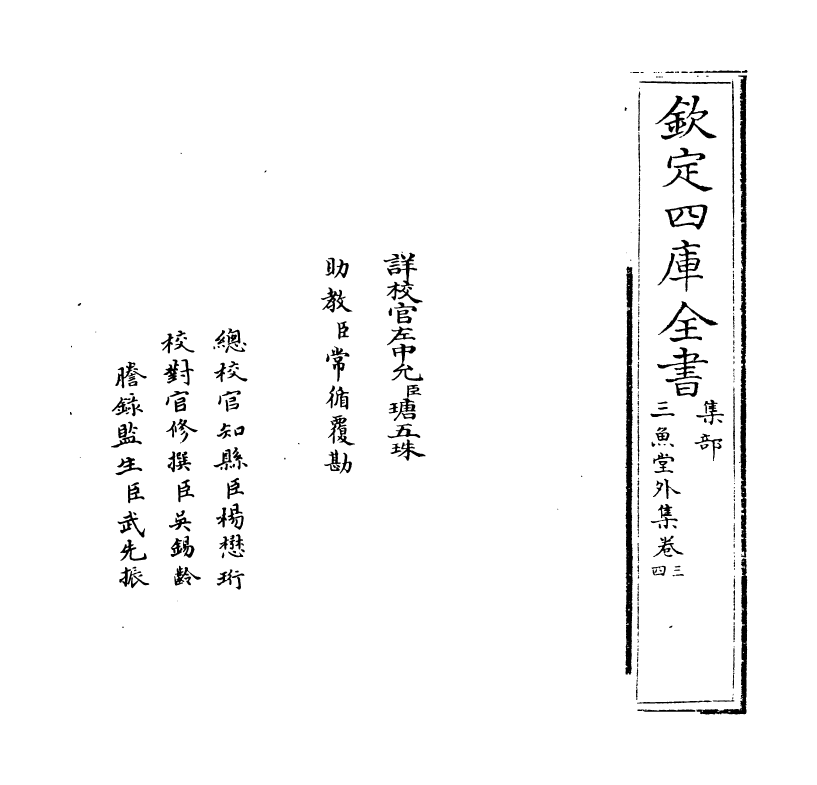 欽定四庫全書
集部
三魚堂外集卷三
四
詳校官左中允臣瑭五珠
助教臣常循覆勘
總校官知縣臣楊懋珩
校對官修撰臣吳錫齡
謄錄監生臣武先振